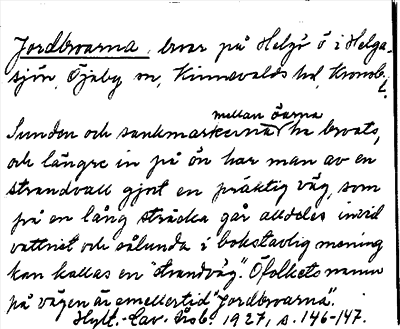 Jordbroarna, broar på Helgö ö i Helga-
sjön, Öjaby sn, Kinnevalds hd, Kronob.
l.
mellan öarna
Sunden och sankmarkerna ha broats,
och längre in på ön har man av en
strandvall gjort en präktig väg, som
på en lång sträcka går alldeles invid
vattnet och sålunda i bokstavlig mening
kan kallas en "strandväg". Öfolkets namn
på vägen är emellertid "Jordbroarna".
Hylt.-Cav. Årsb. 1927, s. 146-147.